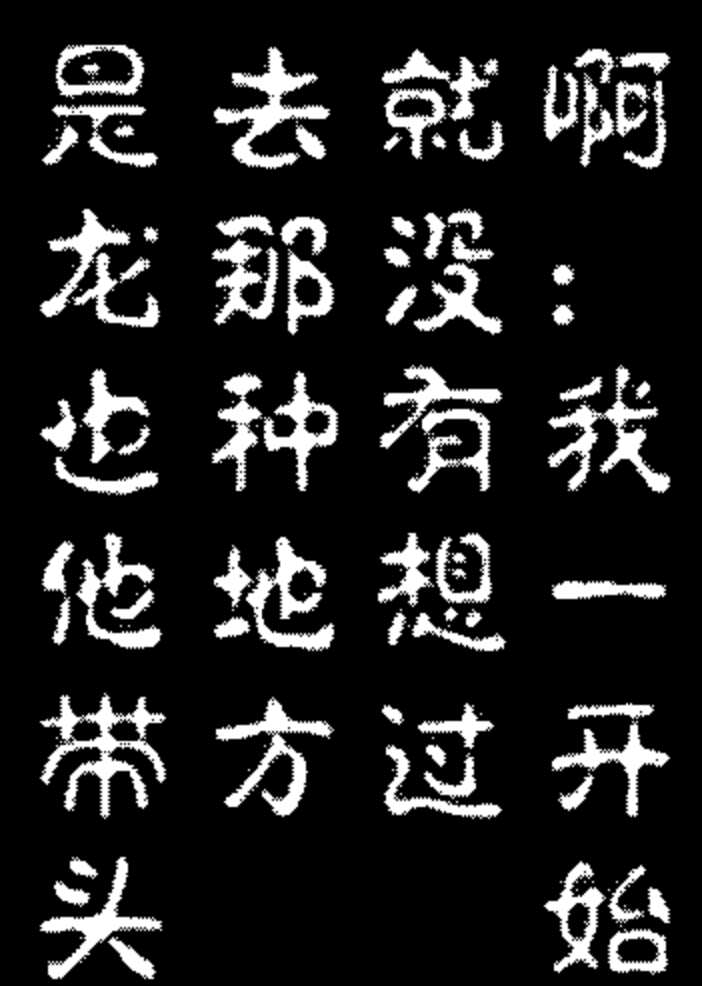 啊：我一开始
就没有想过
去那种地方
是龙也他带头